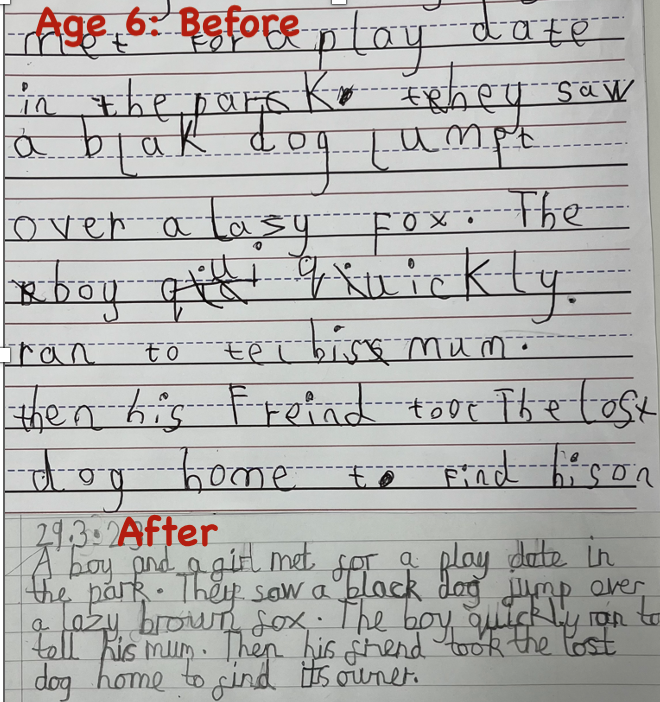 Age 6: Before
met for a play date
in the park. they saw
a blak dog Lumpt
over a lasy Fox. The
boy quickly.
ran to tel his mum.
then his Freind tooc The Lost
dog home to Find hison
29.3.
After
A boy and a girl met for a play date in
the park. They saw a black dog jump over
a lazy brown fox. The boy quickly ran to
tell his mum. Then his friend took the lost
dog home to find its owner.